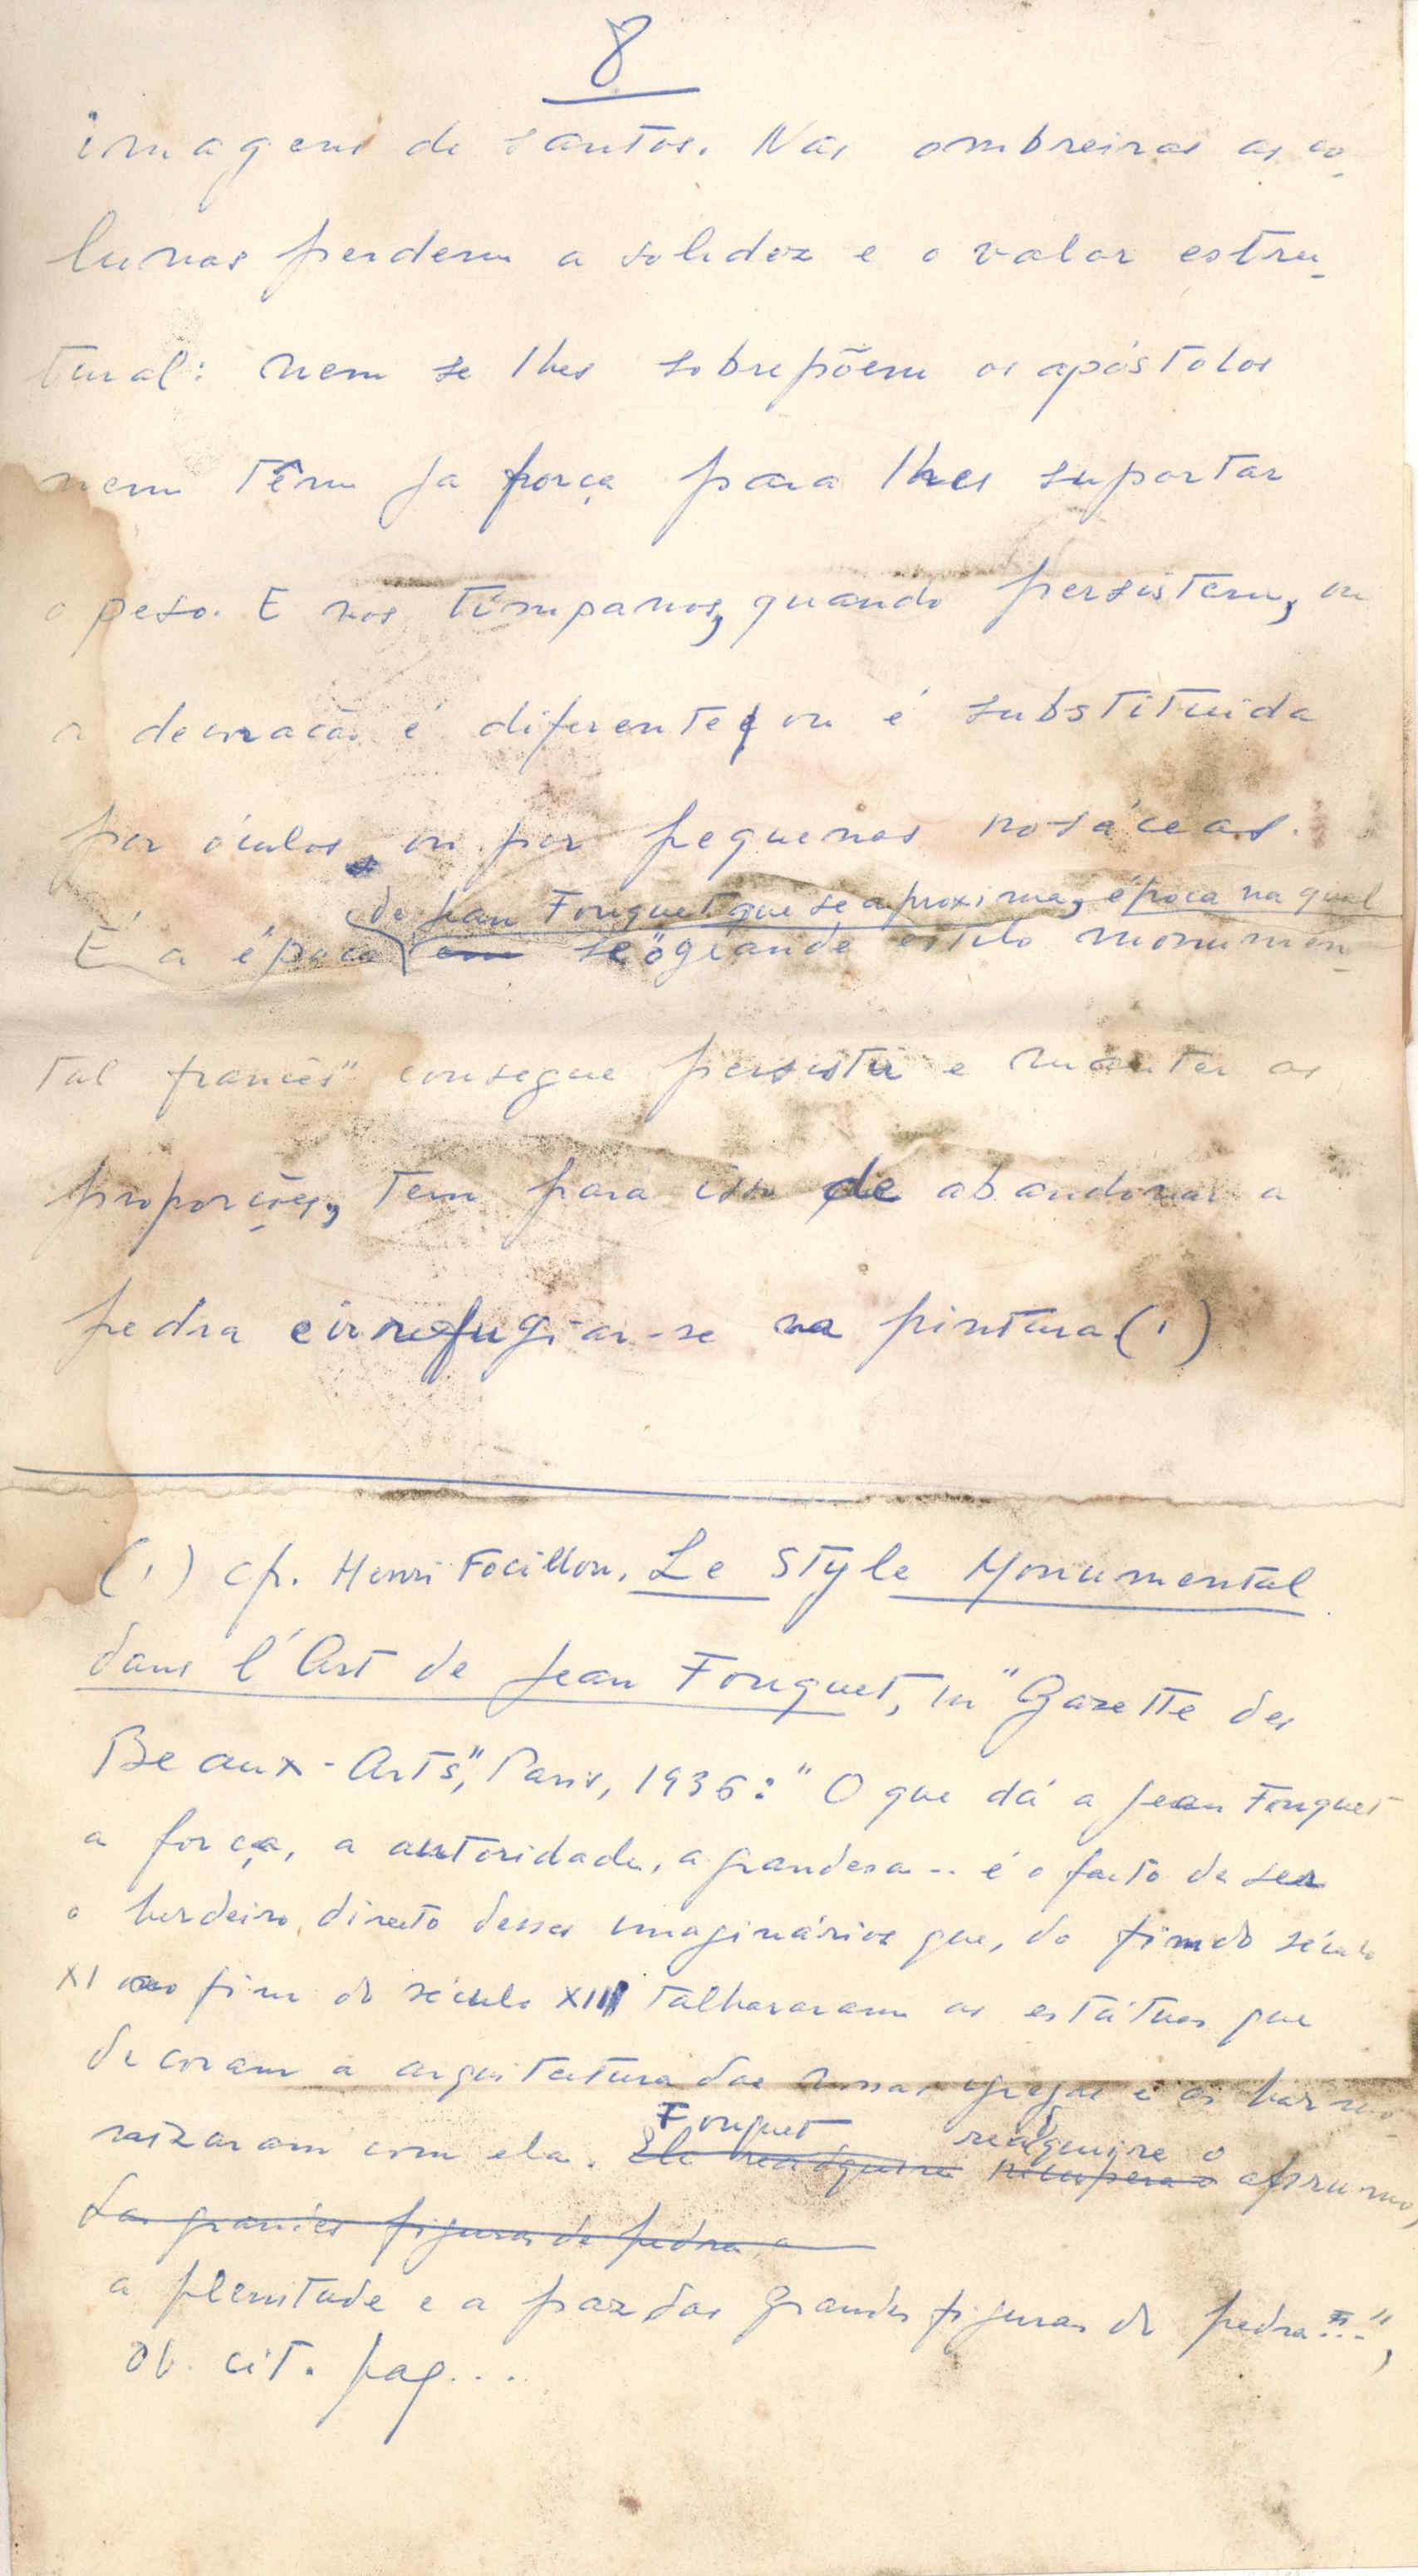 8
imagens de santos. Nas ombreiras as co-
lunas perdem a solidez e o valor estru-
tural: nem se lhes sobrepõem os apóstolos
nem têm ja força para lhes suportar
o peso. E nos tímpanos, quando persistem, ou
a decoração é diferente, ou é substituida
por óculos, ou por pequenas rosáceas.
de Jean Fouquet que se aproxima, época na qual
É a época em se o "grande estilo monumen-
tal francês" consegue persistir e manter as
proporções, tem para isso de abandonar a
pedra e ir refugiar-se na pintura (1)
(1) cfr. Henri Focillon, Le Style Monumental
dans l'Art de Jean Fouquet, in "Gazette des
Beaux-Arts", Paris, 1936: "O que dá a Jean Fouquet
a força, a autoridade, a grandeza... é o facto de ser
o herdeiro directo desses imaginários que, do fim do século
XI ao fim do século XIII talhararam as estátuas que
decoram a arquitectura das nossas igrejas e as harmo-
nizaram com ela. Ele readquire recupera o aprumo,
Fouquet readquire o
das grandes figuras de pedra, a
a plenitude e a paz das grandes figuras de pedra...",
ob. cit. pag...